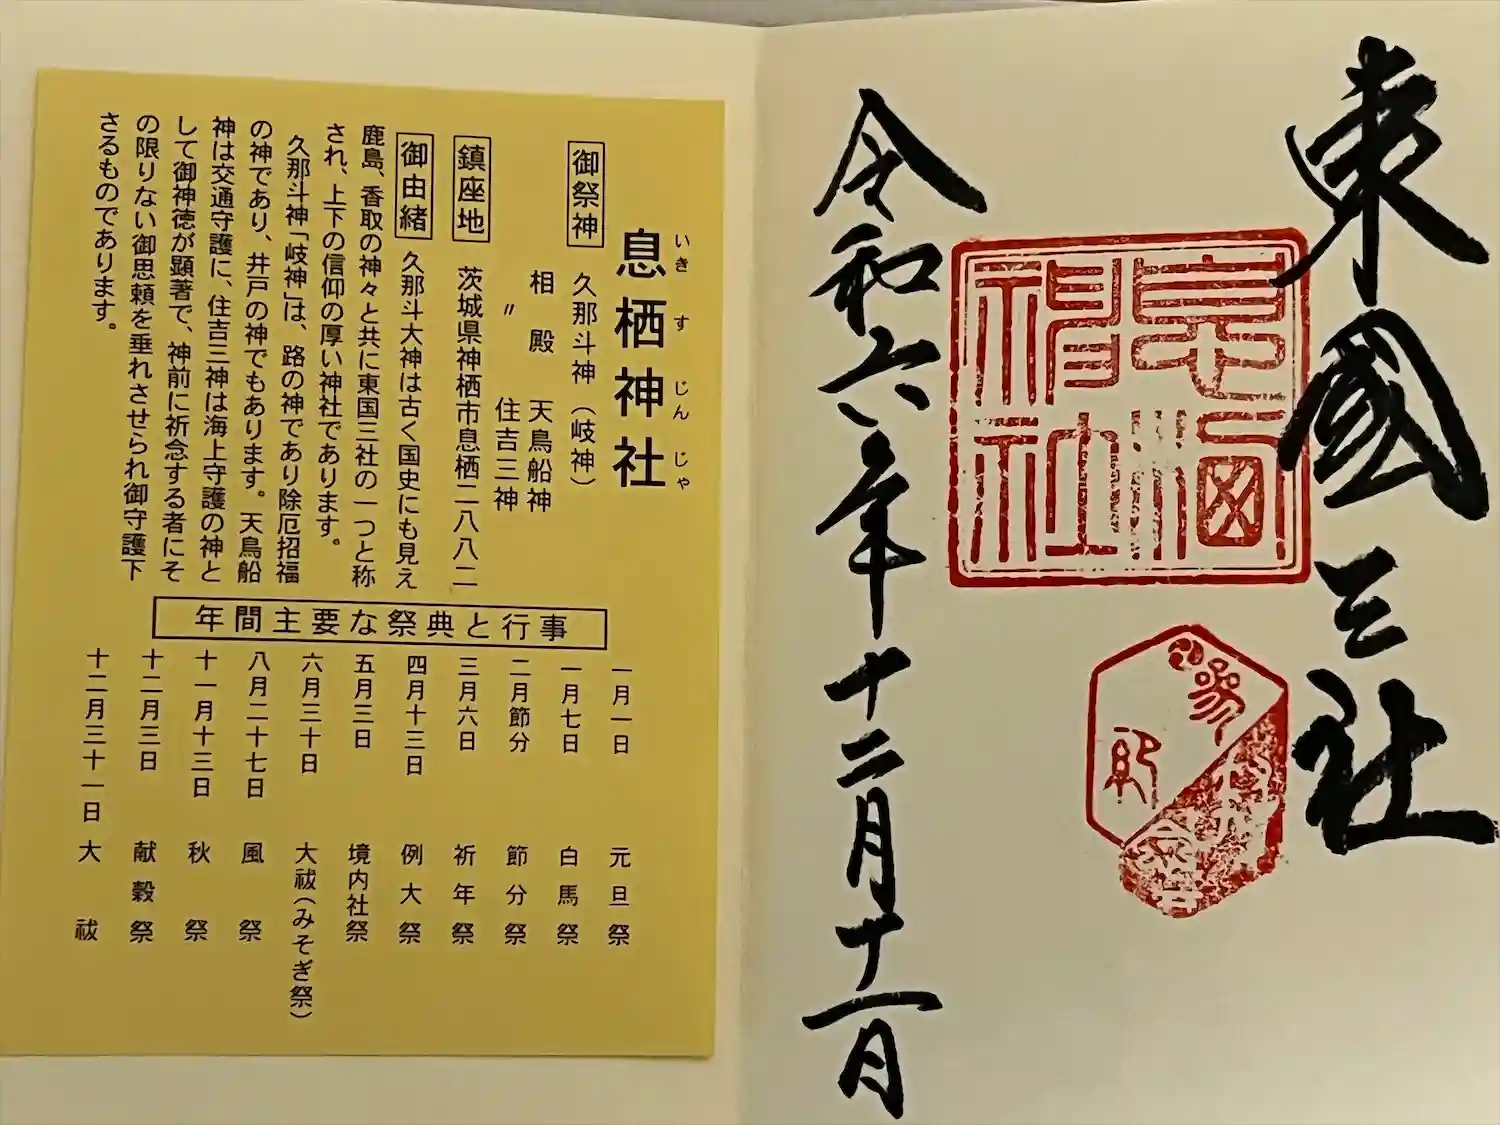 東國三社
息栖神社
参拝
令和六年十二月十一日
息栖神社
いきすじんじゃ
御祭神
久那斗神（岐神）
相殿 天鳥船神
〃 住吉三神
鎮座地
茨城県神栖市息栖二八八二
御由緒
久那斗大神は古く国史にも見え
鹿島、香取の神々と共に東国三社の一つと称
され、上下の信仰の厚い神社であります。
久那斗神「岐神」は、路の神であり除厄招福
の神であり、井戸の神でもあります。天鳥船
神は交通守護に、住吉三神は海上守護の神と
して御神徳が顕著で、神前に祈念する者にそ
の限りない御恩頼を垂れさせられ御守護下
さるものであります。
年間主要な祭典と行事
一月一日 元旦祭
一月七日 白馬祭
二月節分 節分祭
三月六日 祈年祭
四月十三日 例大祭
五月三日 境内社祭
六月三十日 大祓（みそぎ祭）
八月二十七日 風祭
十一月十三日 秋祭
十二月三日 献穀祭
十二月三十一日 大祓